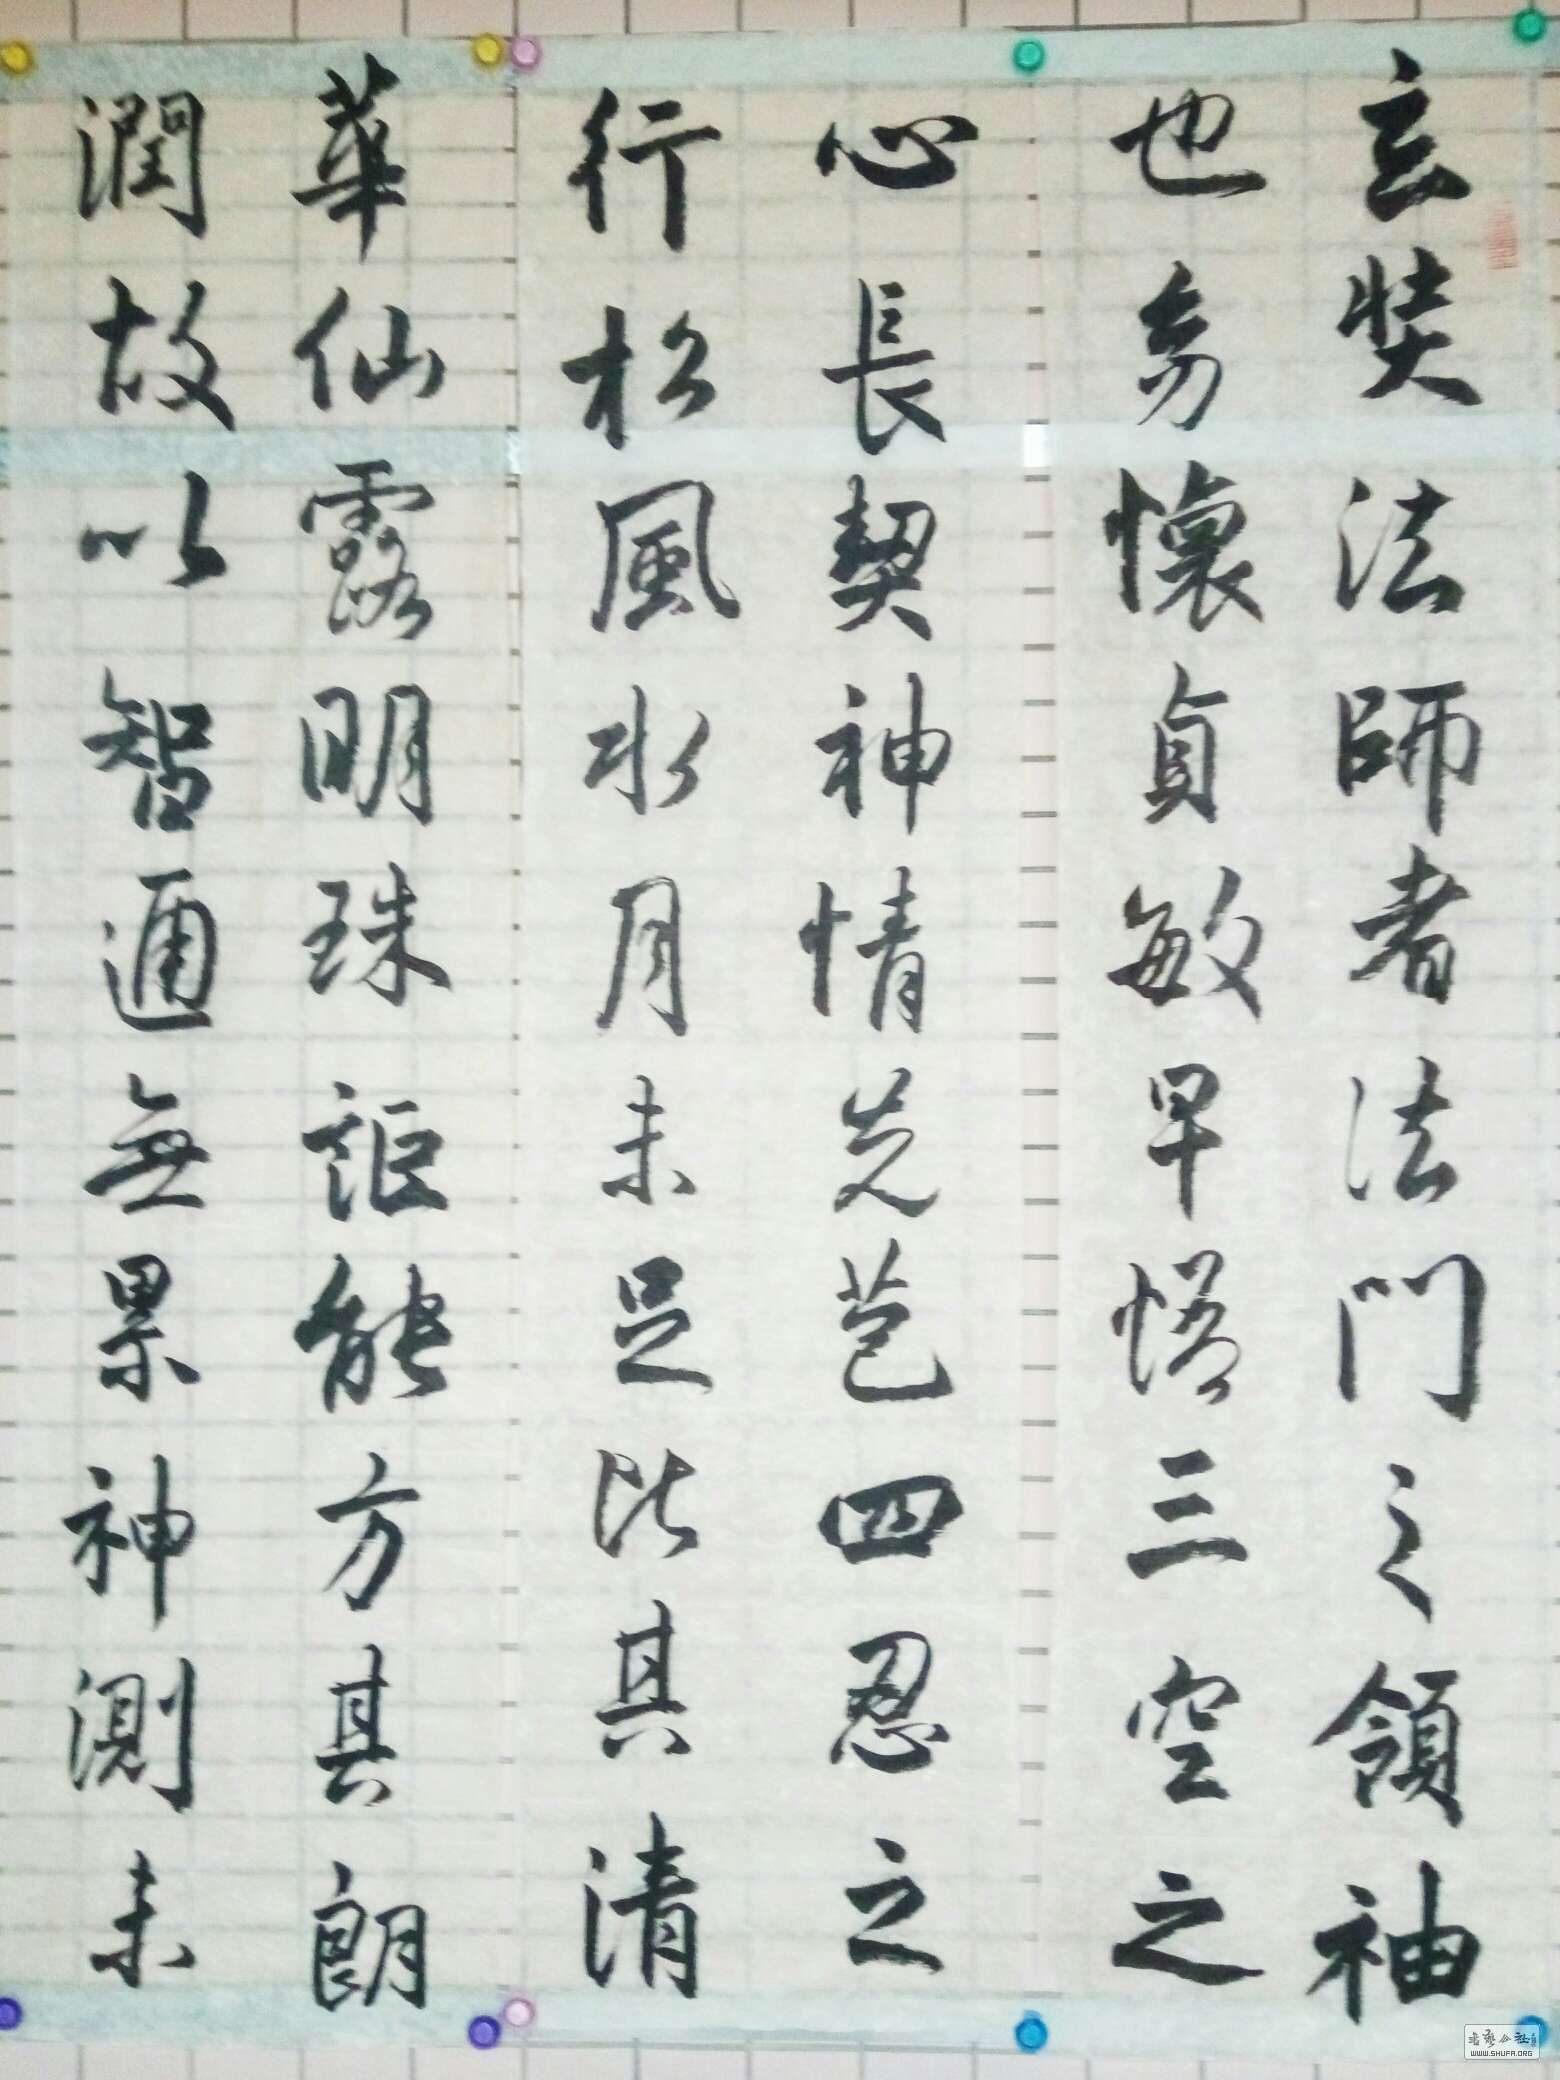 玄奘法師者法門之領袖
也幼懷貞敏早悟三空之
心長契神情先苞四忍之
行松風水月未足比其清
華仙露明珠詎能方其朗
潤故以智通無累神測未
WWW.SHUFA.ORG